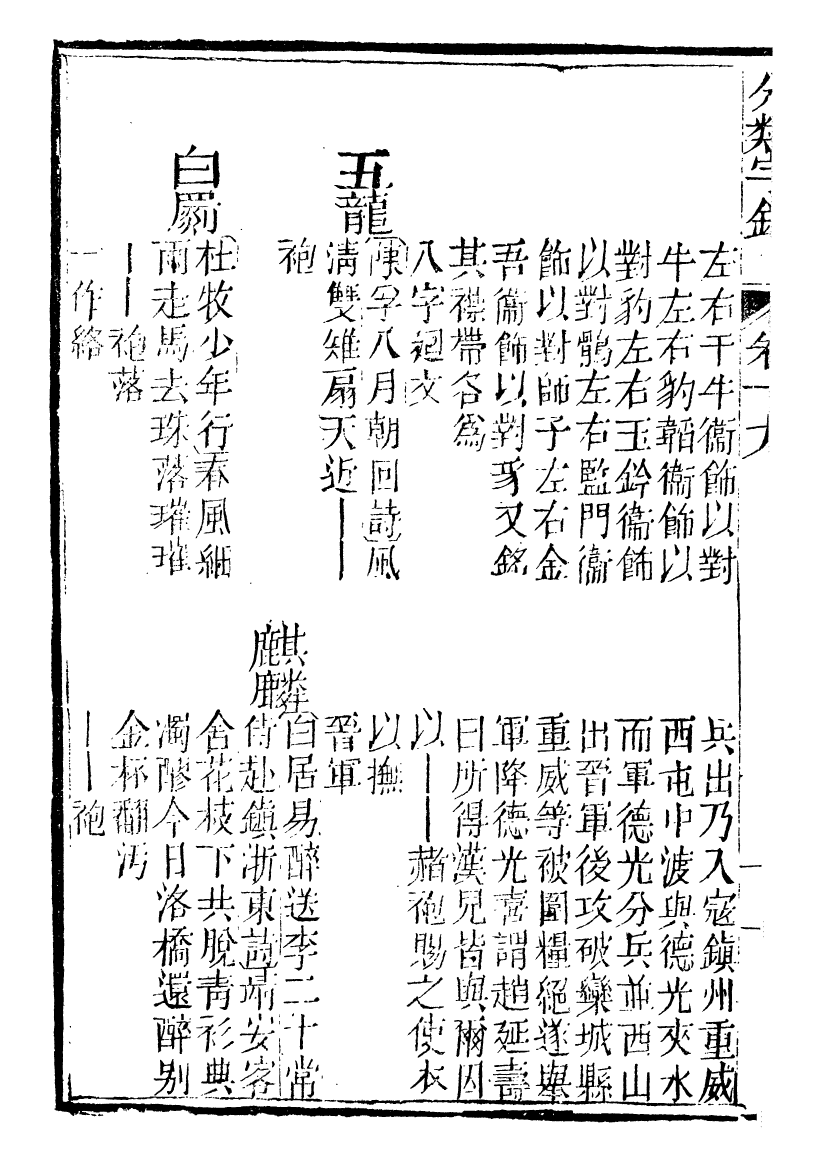 分類字錦 卷十九
左右千牛衞飾以對
牛左右豹韜衞飾以
對豹左右玉鈐衞飾
以對鶻左右監門衞
飾以對師子左右金
吾衞飾以對豸又銘
其襟帶各爲
八字迴文
五龍
陳孚八月朝回詩風
淸雙雉扇天近——
袍
白罽
杜牧少年行春風細
雨走馬去珠落璀璀
——袍落
一作絡
兵出乃入寇鎭州重威
西屯中渡與德光夾水
而軍德光分兵並西山
出晉軍後攻破欒城縣
重威等被圍糧絕遂舉
軍降德光喜謂趙延壽
曰所得漢兒皆與爾因
以——赭袍賜之使衣
以撫
晉軍
麒麟
白居易醉送李二十常
侍赴鎭浙東詩靖安客
舍花枝下共脫靑衫典
濁醪今日洛橋還醉别
金杯翻汚
——袍